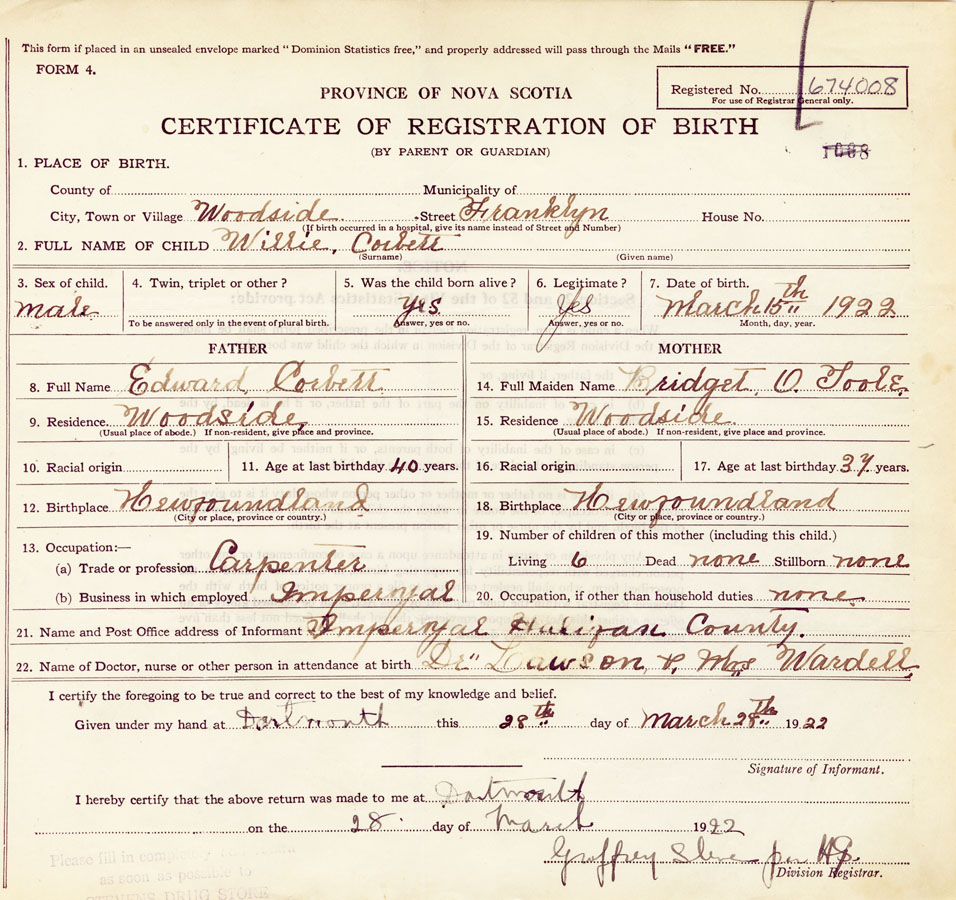 This form if placed in an unsealed envelope marked "Dominion Statistics free," and properly addressed will pass through the Mails "FREE."
FORM 4.
Registered No. 674008
For use of Registrar General only.
PROVINCE OF NOVA SCOTIA
CERTIFICATE OF REGISTRATION OF BIRTH
(BY PARENT OR GUARDIAN)
1. PLACE OF BIRTH.
County of Municipality of
City, Town or Village Woodside Street Franklyn House No.
(If birth occurred in a hospital, give its name instead of Street and Number)
2. FULL NAME OF CHILD Willie, Corbett
(Surname) (Given name)
3. Sex of child. 4. Twin, triplet or other? 5. Was the child born alive? 6. Legitimate? 7. Date of birth.
male Yes Yes March 15th 1922
To be answered only in the event of plural birth. Answer, yes or no. Answer, yes or no. Month, day, year.
FATHER MOTHER
8. Full Name Edward Corbett 14. Full Maiden Name Bridget O. Toole
9. Residence Woodside 15. Residence Woodside
(Usual place of abode.) If non-resident, give place and province. (Usual place of abode.) If non-resident, give place and province.
10. Racial origin 11. Age at last birthday 40 years. 16. Racial origin 17. Age at last birthday 37 years.
12. Birthplace Newfoundland 18. Birthplace Newfoundland
(City or place, province or country.) (City or place, province or country.)
13. Occupation:— 19. Number of children of this mother (including this child.)
(a) Trade or profession Carpenter Living 6 Dead none Stillborn none
(b) Business in which employed Imperoyal 20. Occupation, if other than household duties none
21. Name and Post Office address of Informant Imperoyal Halifax County.
22. Name of Doctor, nurse or other person in attendance at birth Dr Lawson & Mrs Wardell
I certify the foregoing to be true and correct to the best of my knowledge and belief.
Given under my hand at Dartmouth this 28th day of March 28th 1922
Signature of Informant.
I hereby certify that the above return was made to me at Dartmouth
on the 28 day of March 1922
Division Registrar.
Please fill in
as soon as possible to
STEVENS DRUG STORE